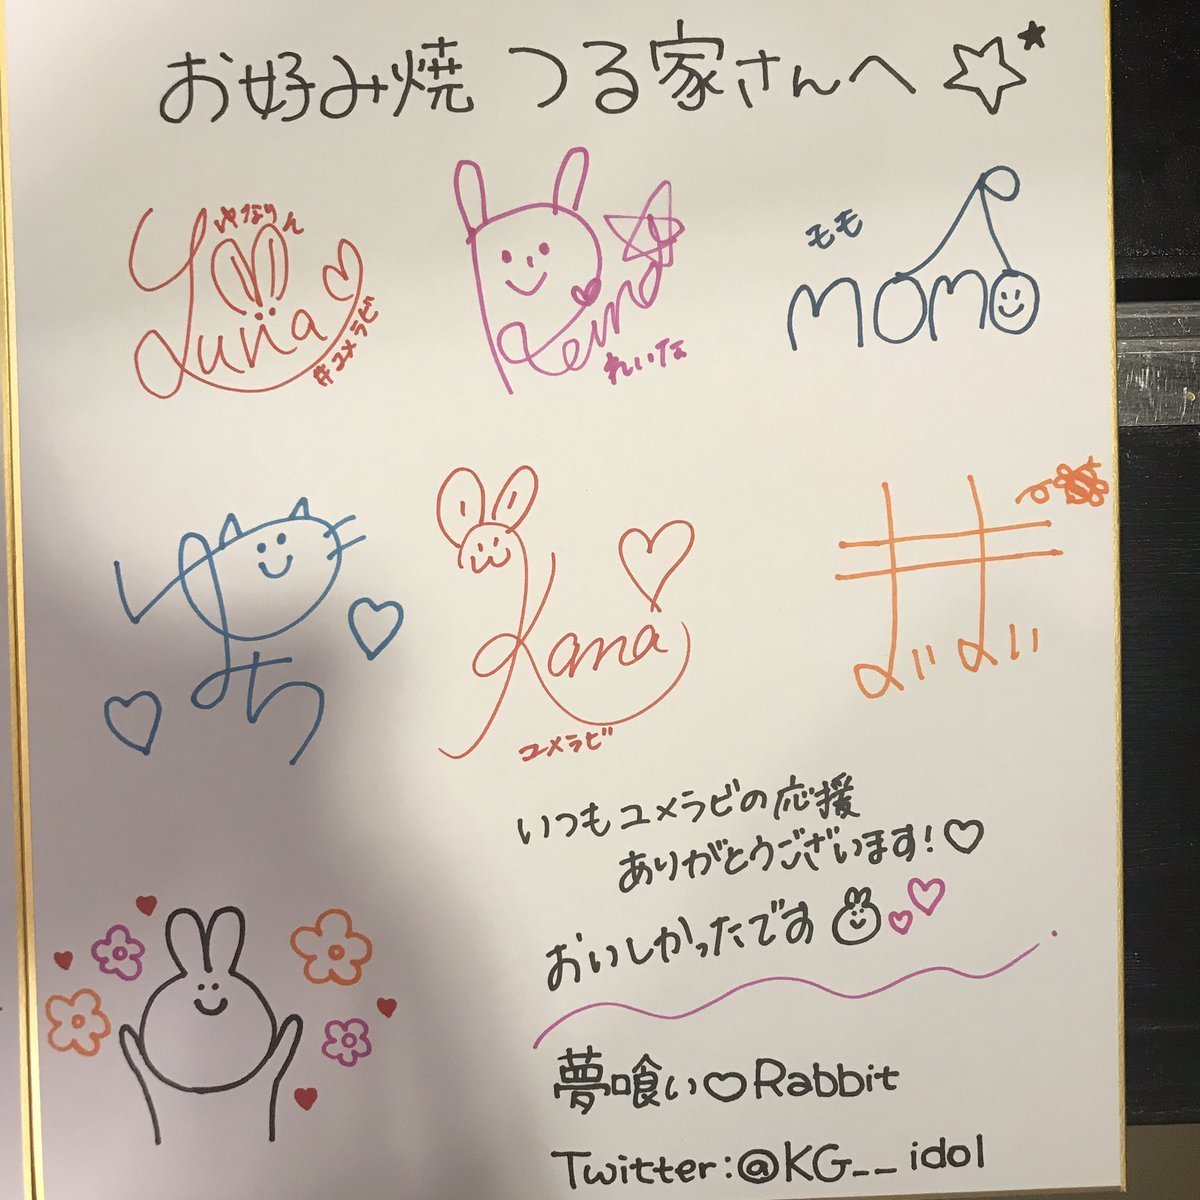 お好み焼 つる家さんへ
ゆなりん
Yuna
#ユメラビ
Reina
れいな
モモ
momo
ゆみち
Kana
ユメラビ
いつもユメラビの応援
ありがとうございます!
おいしかったです
夢喰い♡Rabbit
Twitter:@KG__idol